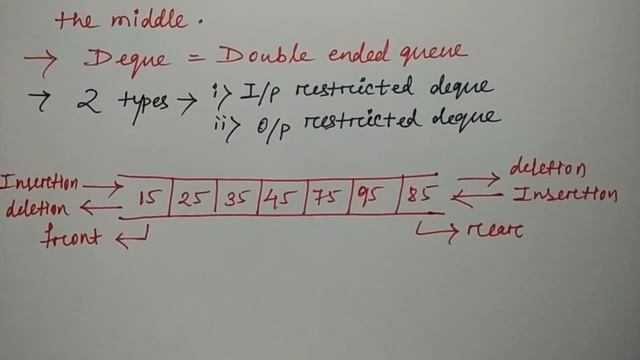 the middle.
→ Deque = Double ended queue
→ 2 types → i> I/p restricted deque
ii> O/p restricted deque
Insertion → 15 25 35 45 75 95 85 → deletion
deletion ← ← Insertion
front ↵ ↳ rear